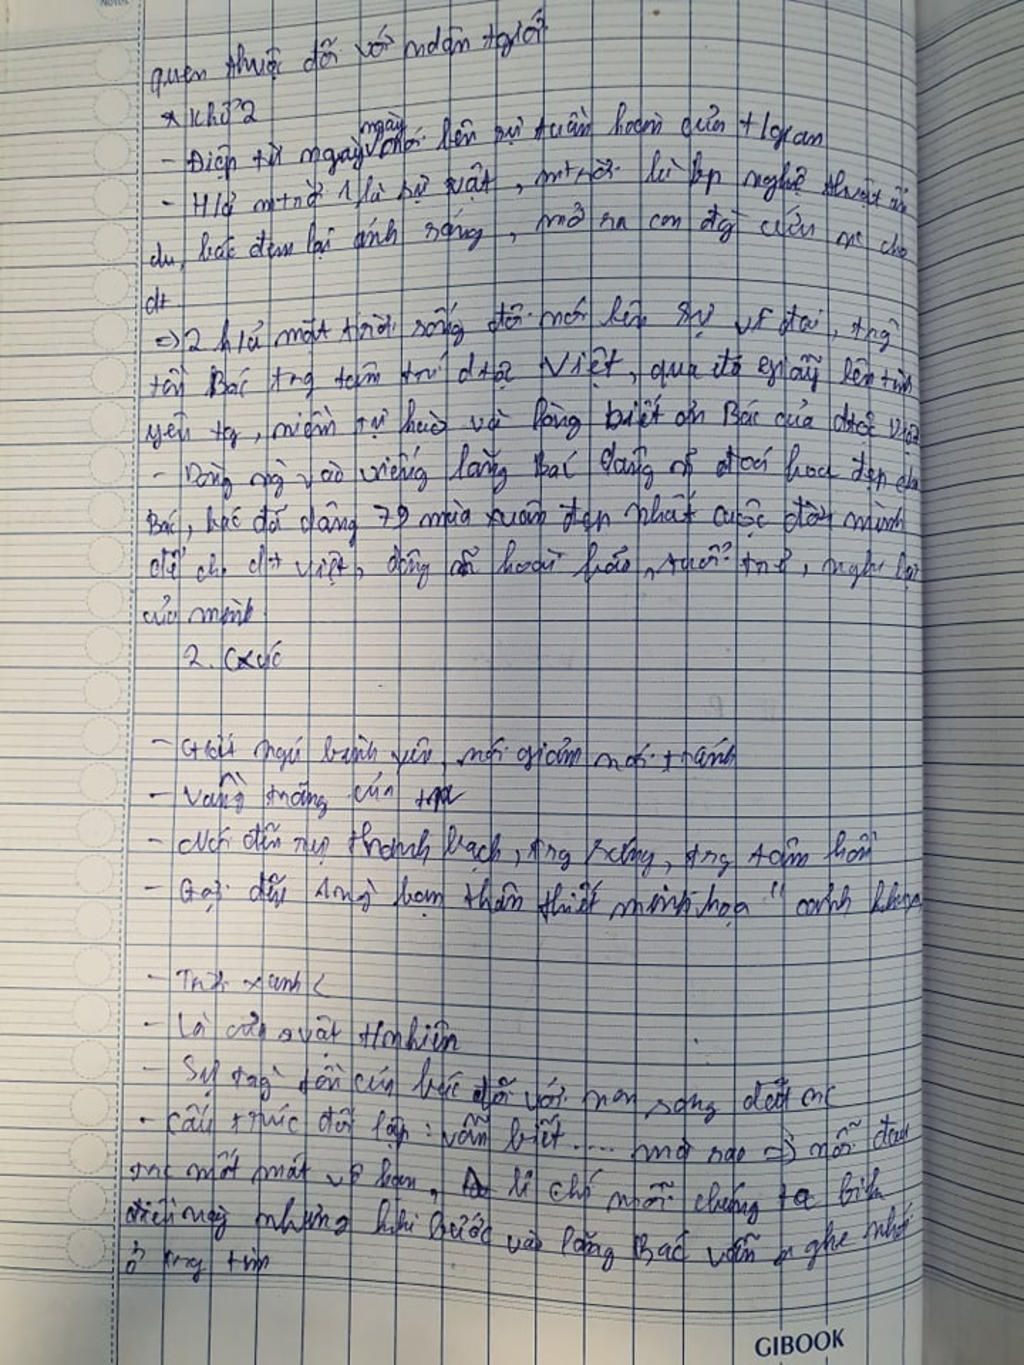 quen thuộc đối với nhân tgiới
* Khổ 2
- Điệp từ ngày ngày nói lên sự tuần hoàn của tgian
- H/ả mtrời 1 là sự vật, mtrời là bp nghệ thuật ẩn
dụ, bác đem lại ánh sáng, mở ra con đg cứu nc cho
dt
=> 2 h/ả mặt trời sóng đôi nói lên sự vĩ đại, trg
tồn Bác trg tâm trí dtộc Việt, qua đó gợi lên tình
yêu tg, niềm tự hào và lòng biết ơn Bác của dtộc Việt
- Dòng ng vào viếng lăng Bác dâng đoá hoa đẹp cho
Bác, bác đã dâng 79 mùa xuân đẹp nhất cuộc đời mình
để cho dt việt, hoài bão, tuổi trẻ, nghị lực
của mình
2. Cxúc
- Giấc ngủ bình yên, nói giảm nói tránh
- Vầng trăng của
- Nói đến sự thanh bạch, trg sáng, trg tâm hồn
- Gợi đến 1 ng bạn thân thiết minh họa " cảnh khuya
- Trời xanh <
- Là của vật tnhiên
- Sự trg tồn của bác đối với non sông đất nc
- Cấu trúc đối lập: vẫn biết .... mà sao => nỗi đau
mất mát vô hạn, lí chí mỗi chúng ta biết
điều này nhưng khi bước vào lăng Bác vẫn nghe nhói
ở trg tim
GIBOOK